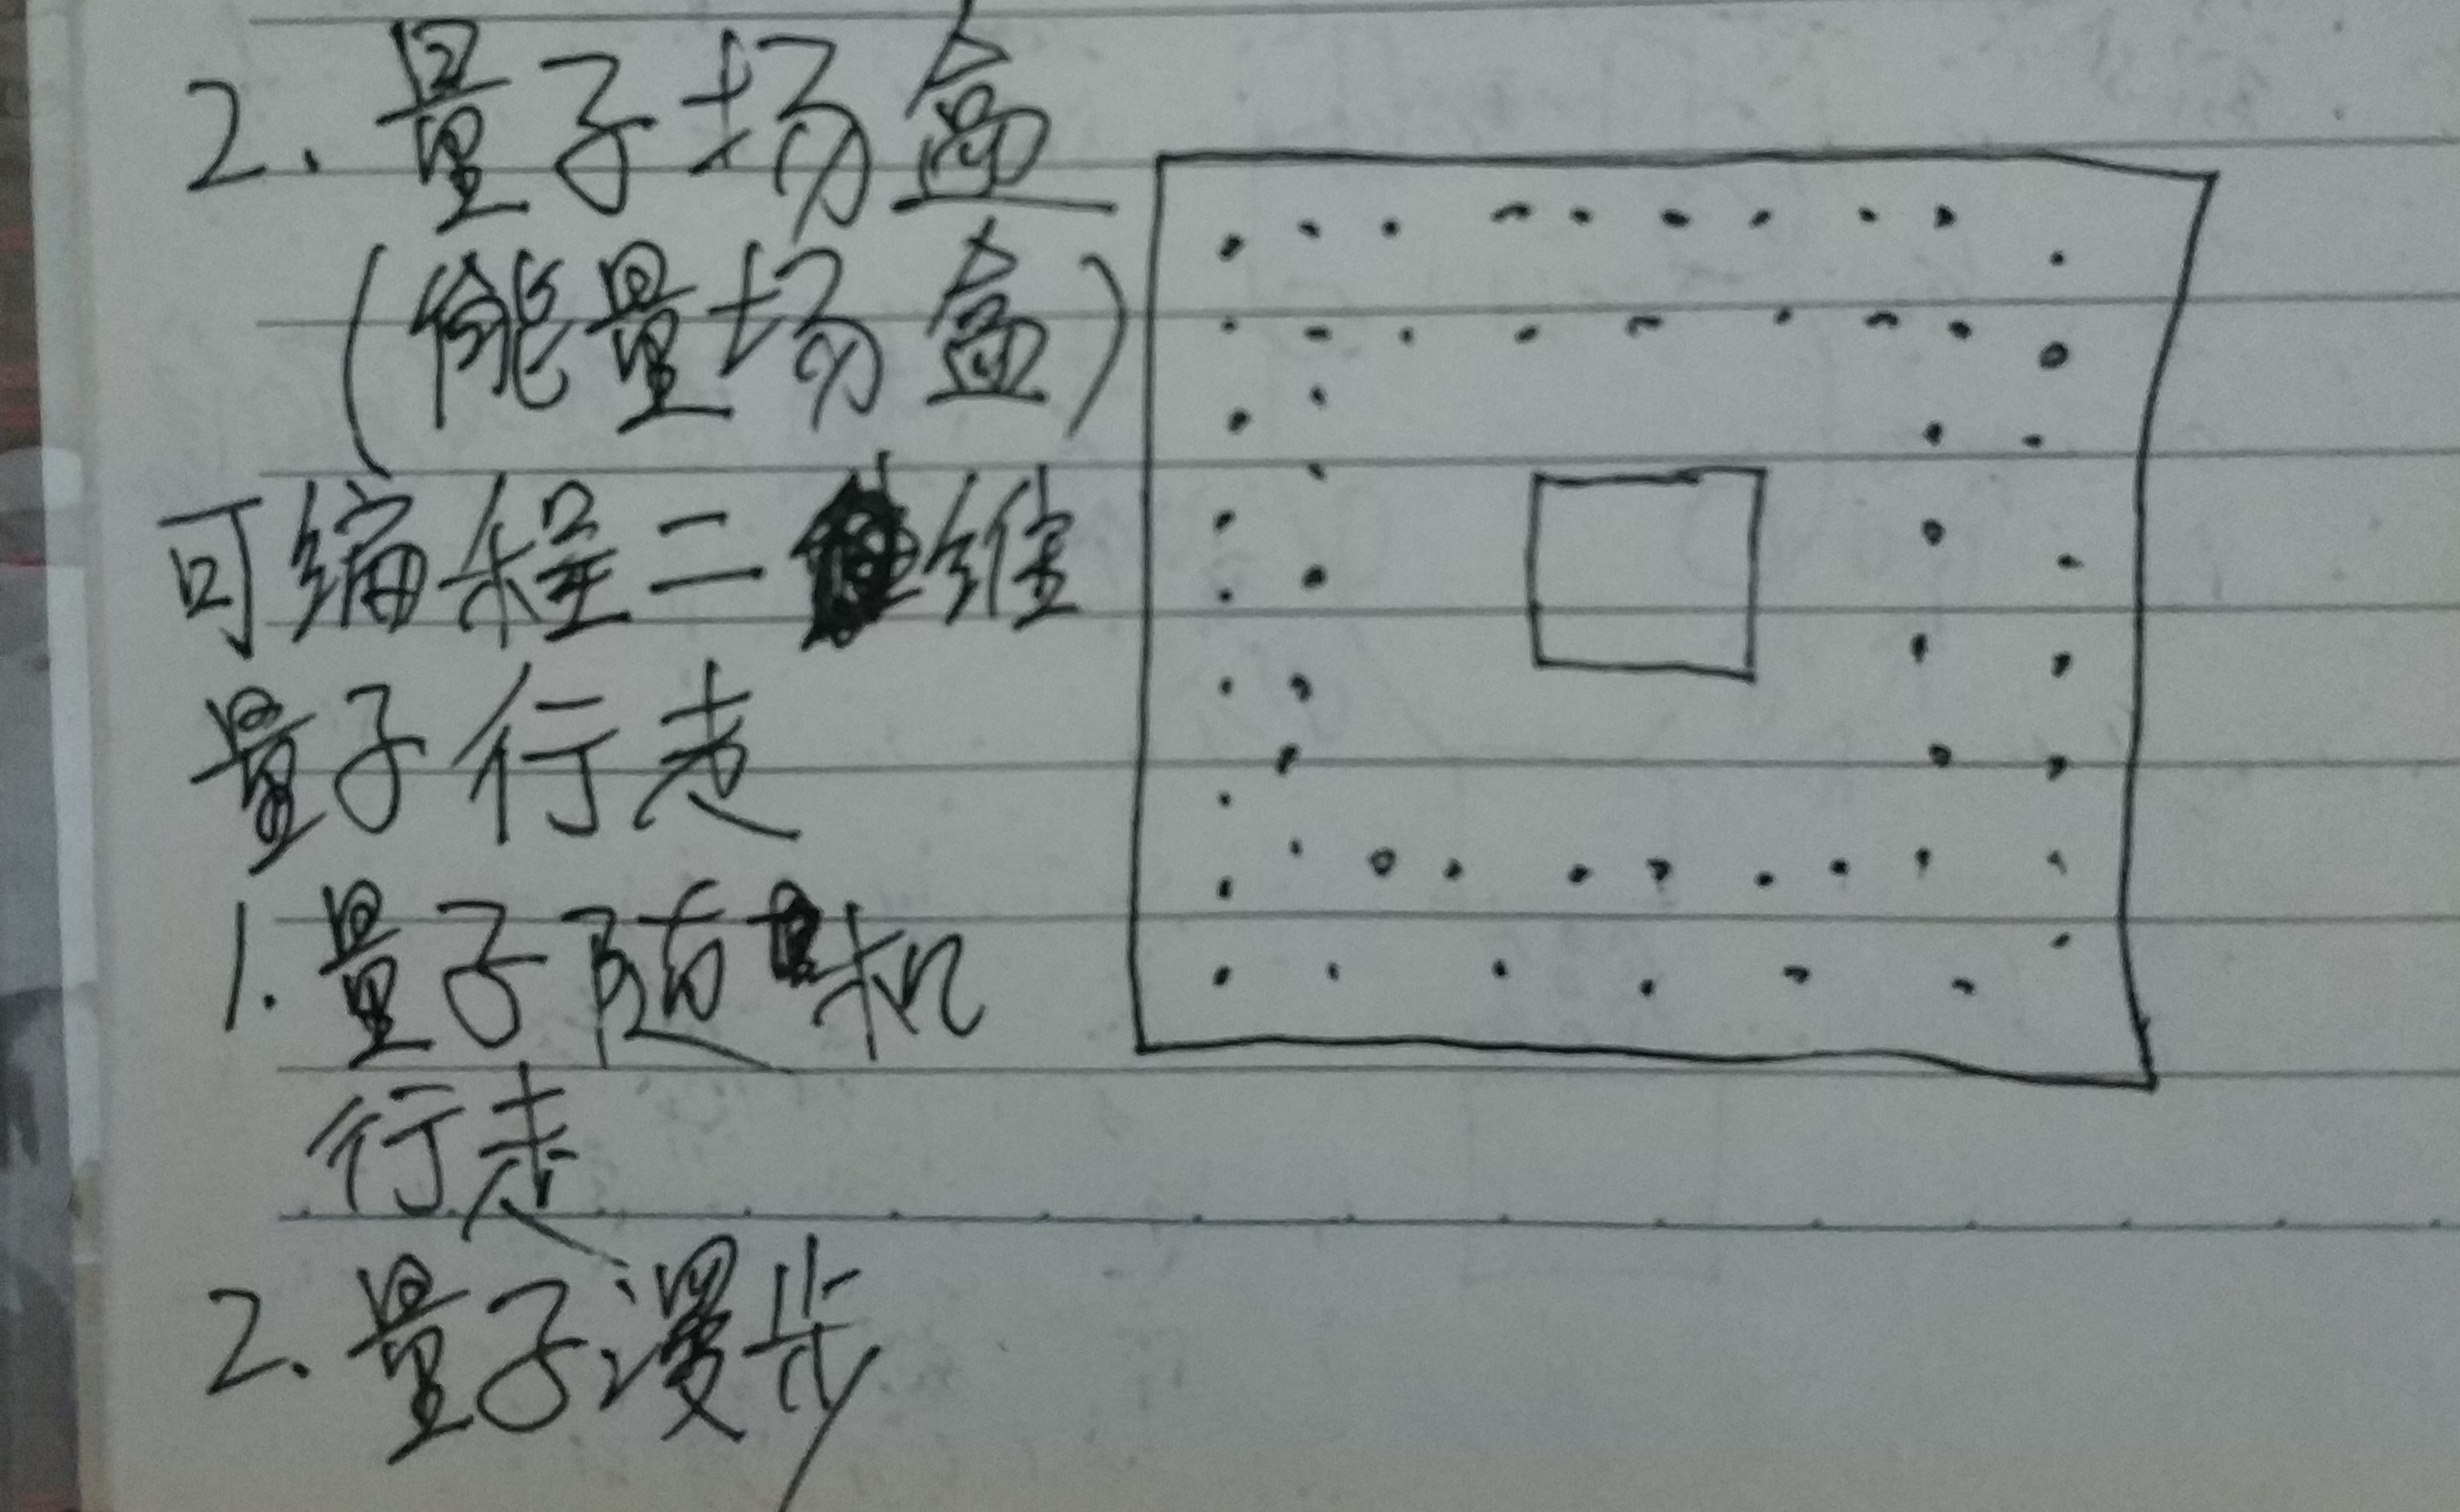 2. 量子场盒
(能量场盒)
可编程二维
量子行走
1. 量子随机
行走
2. 量子漫步